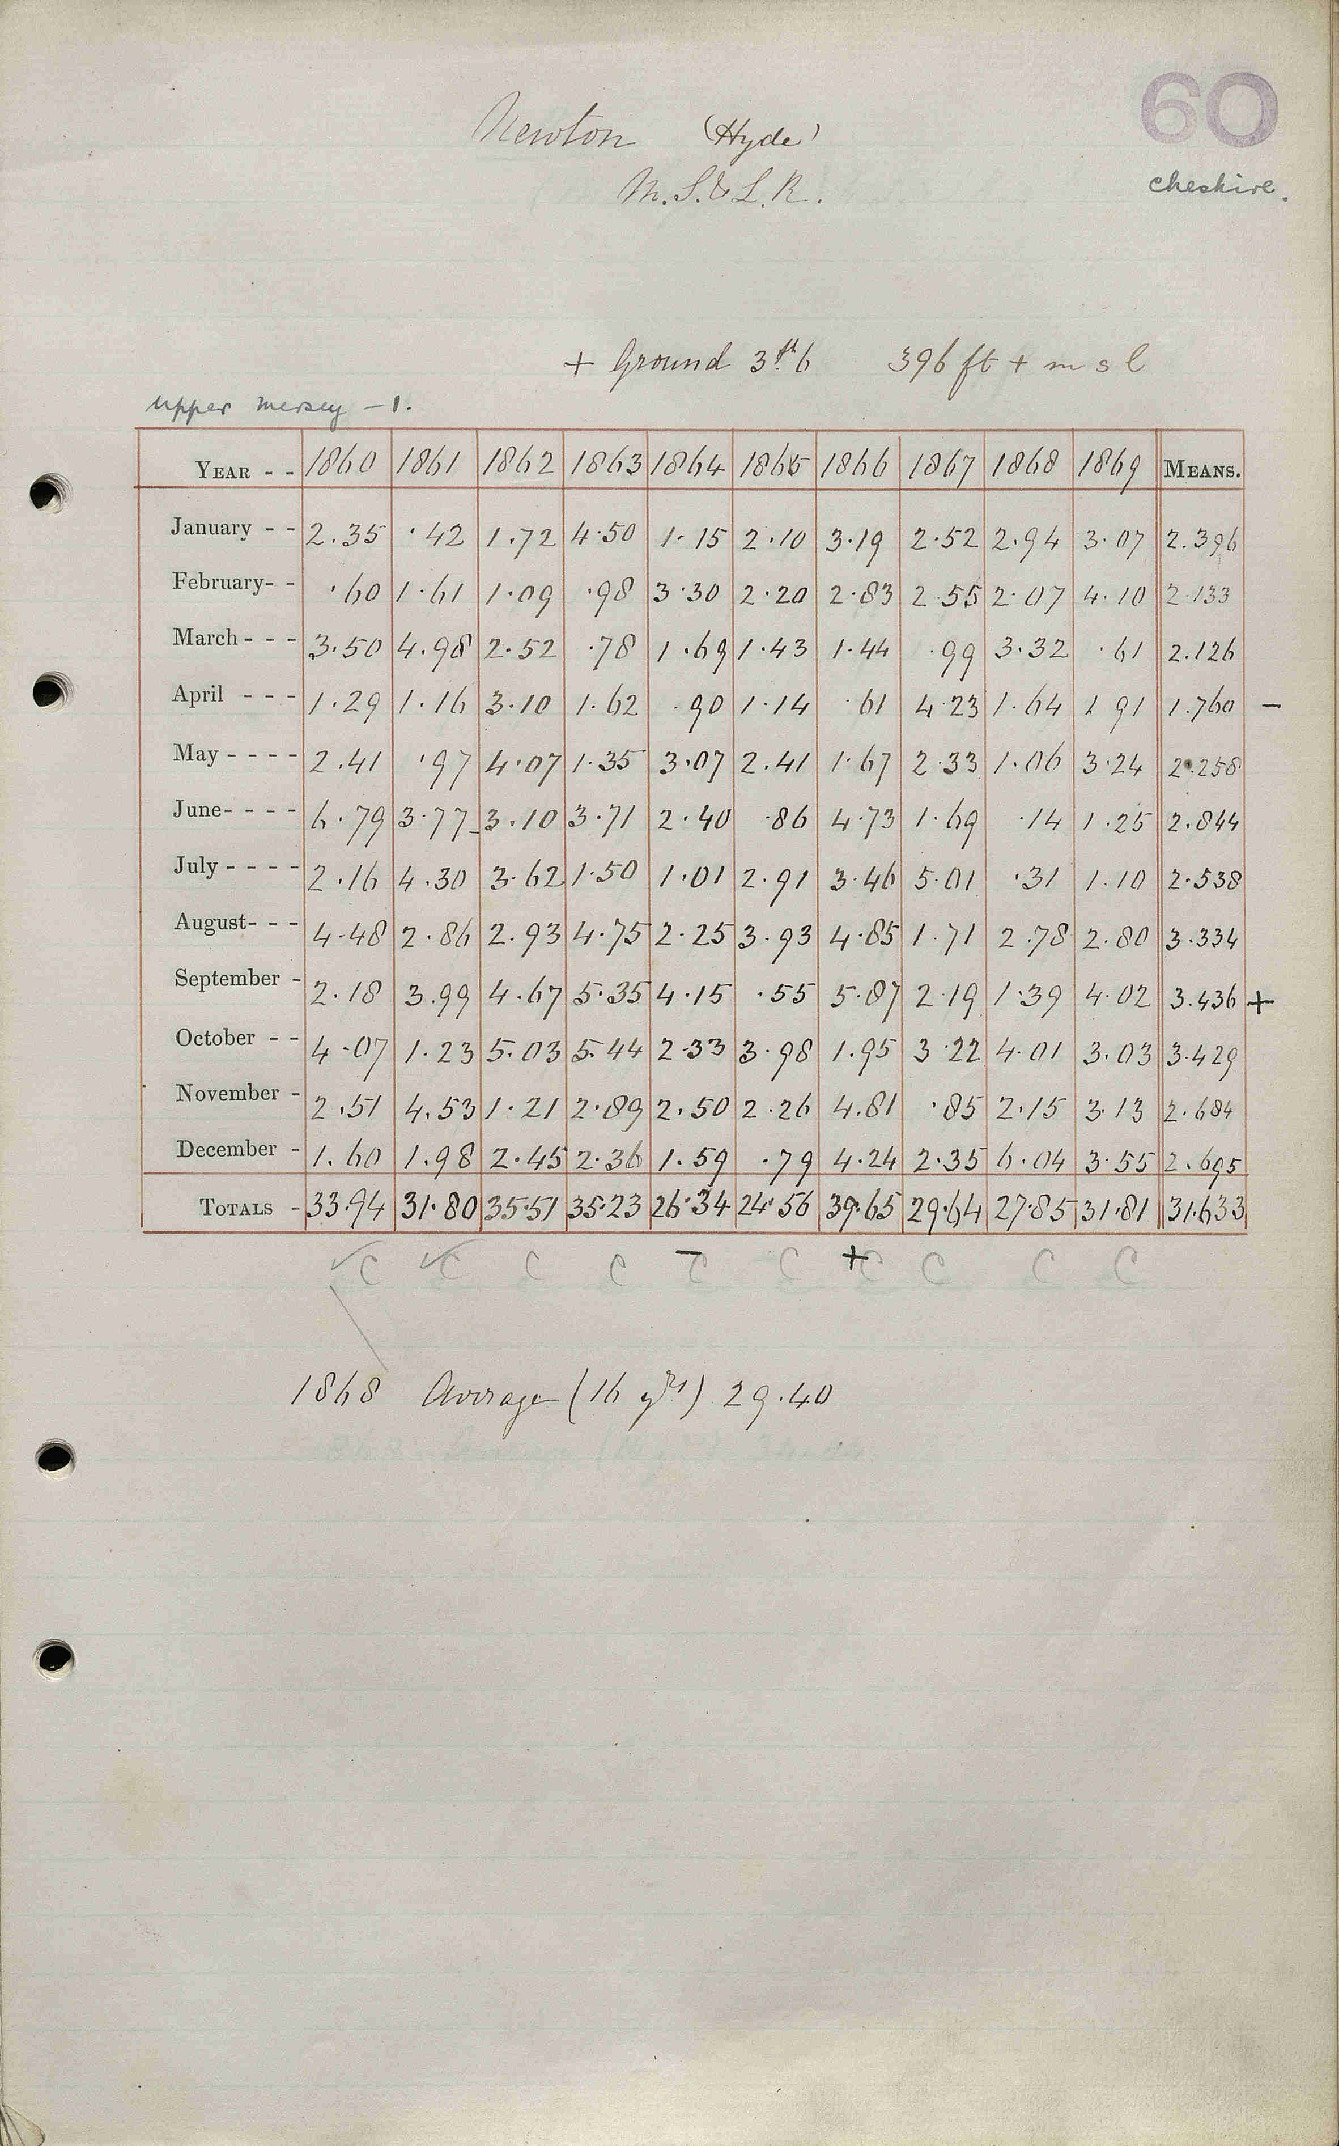 60
Newton (Hyde)
M.S.&L.R.
Cheshire.
+ Ground 3ft 6 396 ft + m s l
Upper Mersey - 1.
YEAR - - 1860 1861 1862 1863 1864 1865 1866 1867 1868 1869 MEANS.
January - - 2.35 .42 1.72 4.50 1.15 2.10 3.19 2.52 2.94 3.07 2.396
February- - .60 1.61 1.09 .98 3.30 2.20 2.83 2.55 2.07 4.10 2.133
March - - - 3.50 4.98 2.52 .78 1.69 1.43 1.44 .99 3.32 .61 2.126
April - - - 1.29 1.16 3.10 1.62 .90 1.14 .61 4.23 1.64 1.91 1.760 -
May - - - - 2.41 .97 4.07 1.35 3.07 2.41 1.67 2.33 1.06 3.24 2.258
June- - - - 6.79 3.77 3.10 3.71 2.40 .86 4.73 1.69 .14 1.25 2.844
July - - - - 2.16 4.30 3.62 1.50 1.01 2.91 3.46 5.01 .31 1.10 2.538
August- - - 4.48 2.86 2.93 4.75 2.25 3.93 4.85 1.71 2.78 2.80 3.334
September - 2.18 3.99 4.67 5.35 4.15 .55 5.87 2.19 1.39 4.02 3.436 +
October - - 4.07 1.23 5.03 5.44 2.33 3.98 1.95 3.22 4.01 3.03 3.429
November - 2.51 4.53 1.21 2.89 2.50 2.26 4.81 .85 2.15 3.13 2.684
December - 1.60 1.98 2.45 2.36 1.59 .79 4.24 2.35 6.04 3.55 2.695
TOTALS - 33.94 31.80 35.51 35.23 26.34 24.56 39.65 29.64 27.85 31.81 31.633
✓C ✓C C C - C C + C C C C
1868 Average (16 yrs) 29.40